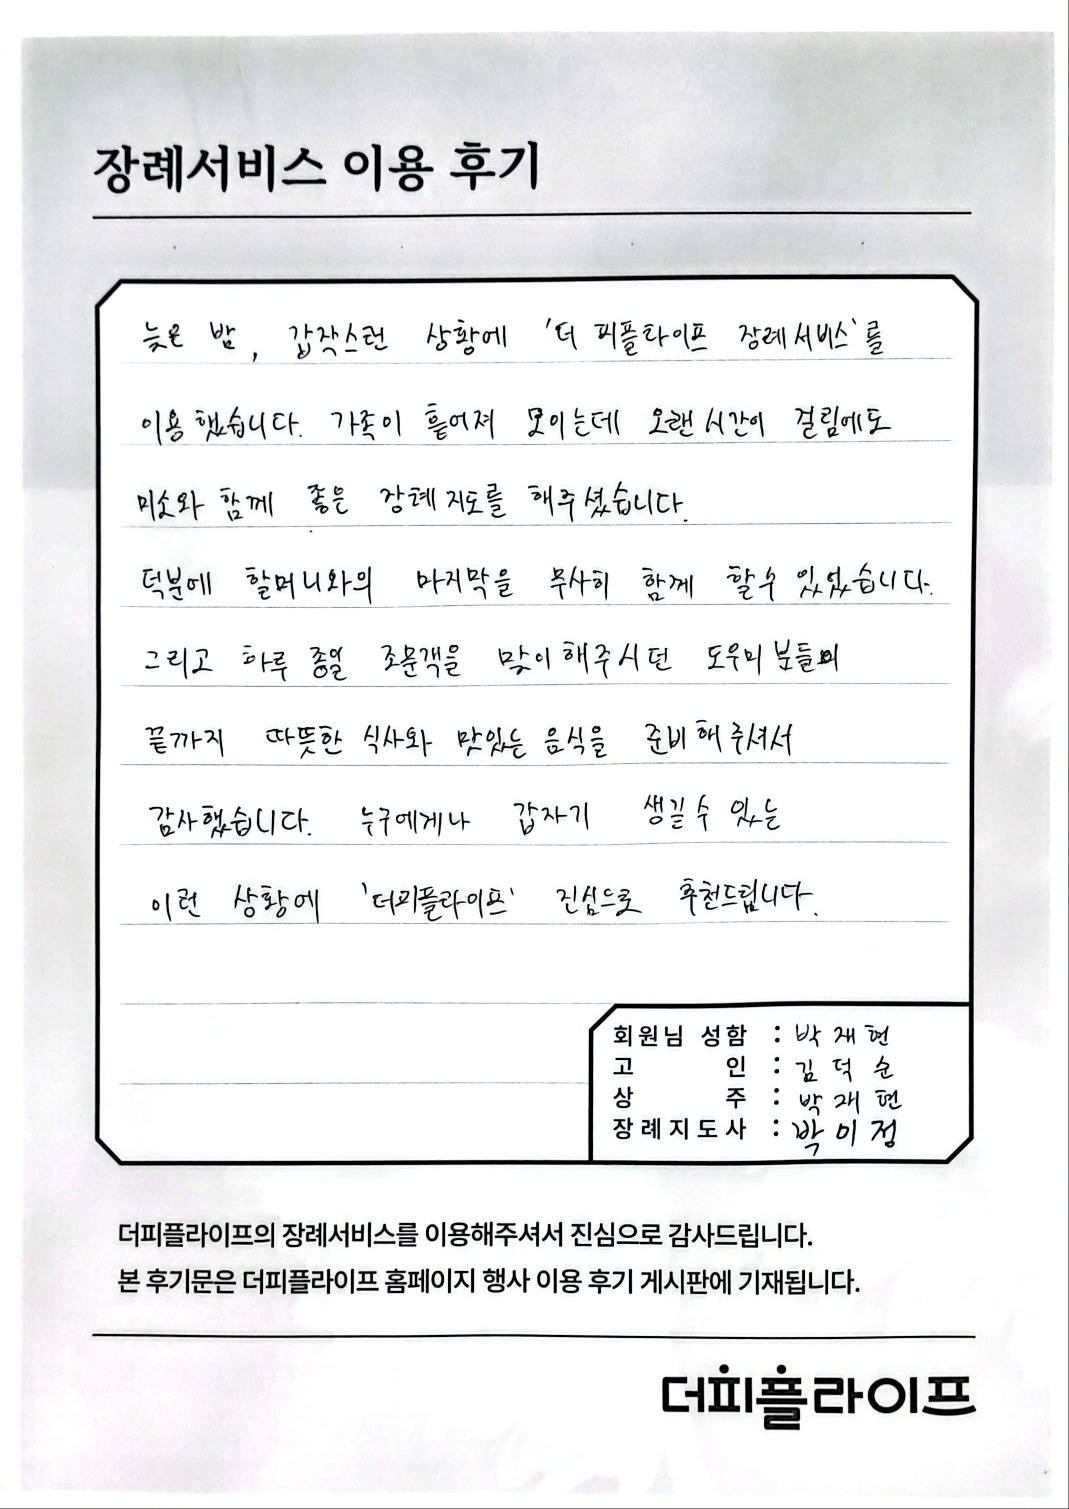 장례서비스 이용 후기
늦은 밤, 갑작스런 상황에 '더 피플라이프 장례서비스'를
이용했습니다. 가족이 흩어져 모이는데 오랜 시간이 걸림에도
미소와 함께 좋은 장례지도를 해주셨습니다.
덕분에 할머니와의 마지막을 무사히 함께 할수 있었습니다.
그리고 하루 종일 조문객을 맞이해주시던 도우미분들의
끝까지 따뜻한 식사와 맛있는 음식을 준비해주셔서
감사했습니다. 누구에게나 갑자기 생길수 있는
이런 상황에 '더피플라이프' 진심으로 추천드립니다.
회원님 성함 : 박재현
고 인 : 김덕순
상 주 : 박재현
장례지도사 : 박이정
더피플라이프의 장례서비스를 이용해주셔서 진심으로 감사드립니다.
본 후기문은 더피플라이프 홈페이지 행사 이용 후기 게시판에 기재됩니다.
더피플라이프